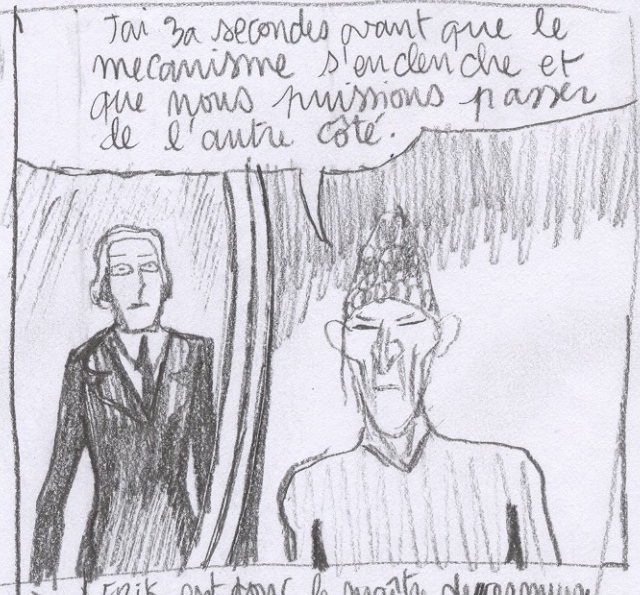 J'ai 30 secondes avant que le
mecanisme s'enclenche et
que nous puissions passer
de l'autre côté.
Erik est donc le maître